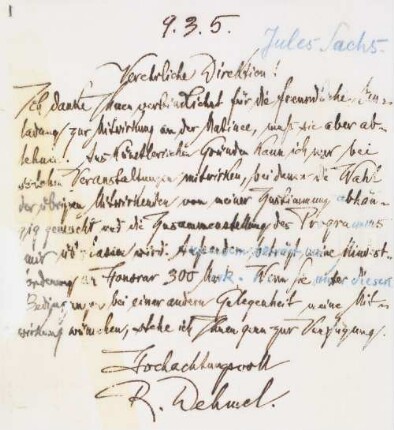 9.3.5.
Jules Sachs.
Verehrliche Direktion!
Ich danke Ihnen verbindlichst für die freundliche Ein-
ladung zur Mitwirkung an der Matinee, muß sie aber ab-
lehnen. Aus künstlerischen Gründen kann ich nur bei
solchen Veranstaltungen mitwirken, bei denen die Wahl
der übrigen Mitwirkenden von meiner Zustimmung abhän-
gig gemacht und die Zusammenstellung des Programms
mir überlassen wird. Ausserdem beträgt meine Mindest-
forderung an Honorar 300 Mark. Wenn Sie unter diesen
Bedingungen bei einer andern Gelegenheit meine Mit-
wirkung wünschen, stehe ich Ihnen gern zur Verfügung.
Hochachtungsvoll
R. Dehmel.